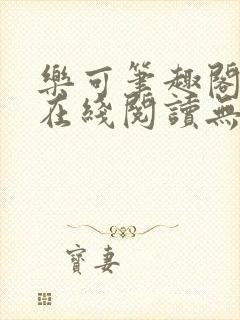 樂可筆趣閣
在綫閱讀無
寶妻